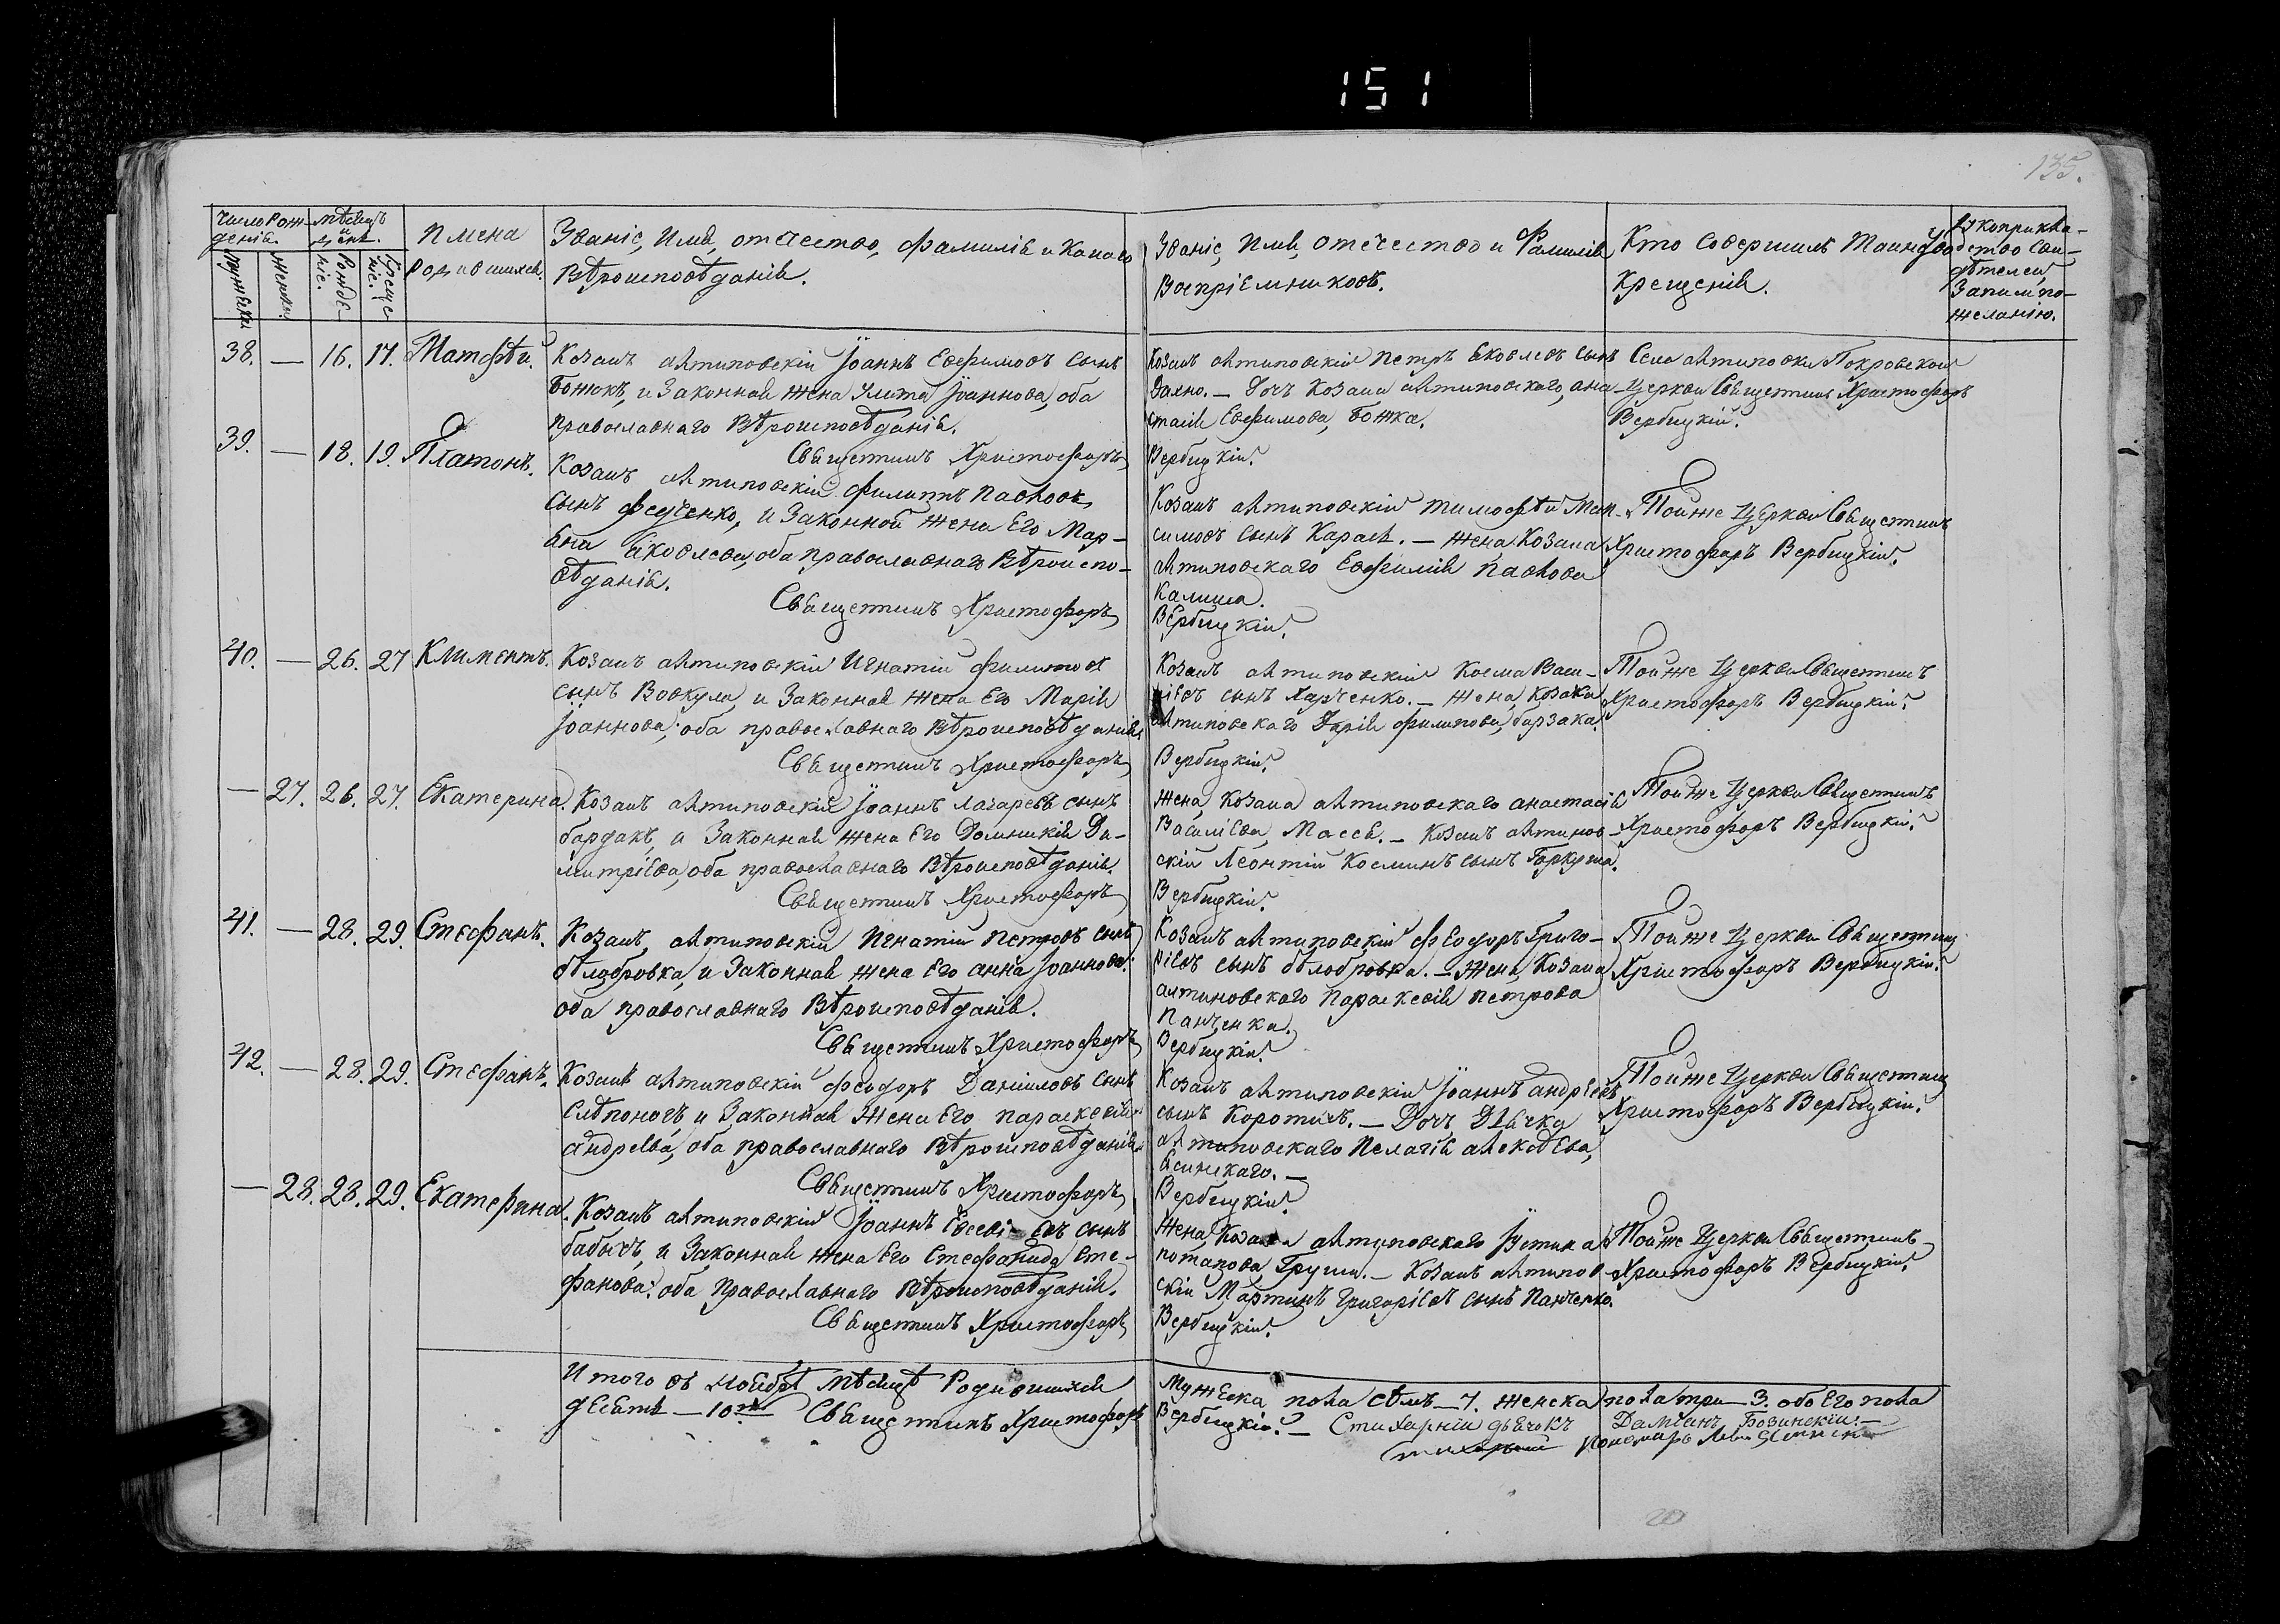 151
135.
Число Рож-
денія.
Мѣсяцъ
и
день.
Имена
Родившихся.
Званіе, Имя, отчество, фамилія и какаго
Вѣроисповѣданія.
Званіе, Имя, отечество и Фамилія
Воспріемниковъ.
Кто совершилъ Таинство
Крещенія.
Рукоприкла-
дство Сви-
дѣтелей
Записи по-
желанію.
Мужеска
Женска
Рожде
ніе.
Креще
ніе.
38. — 16. 17. Матфѣй.
Козакъ антиповскій Іоаннъ Евфимовъ сынъ
Божокъ, и Законная жена Улита Іоаннова, оба
православнаго Вѣроисповѣданія.
Священникъ Христофоръ
Козакъ антиповскій Петръ Яковлевъ сынъ
Дахно. — Дочь Козака антиповскаго, ана-
стасія Евфимова, Божка.
Вербицкій.
Села антиповки Покровской
Церкви Священникъ Христофоръ
Вербицкій.
39. — 18. 19. Платонъ.
Козакъ антиповскій Филиппъ Павловъ
сынъ Федченко, и Законной жена Его Мар-
Яковлева, оба православнаго Вѣроиспо-
вѣданія.
Священникъ Христофоръ
Козакъ антиповскій Тимофѣй Мак-
симовъ сынъ Карась. — жена Козака
антиповскаго Евфимія Павлова
Калиша.
Вербицкій.
Тойже Церкви Священникъ
Христофоръ Вербицкій.
40. — 26. 27 Климентъ.
Козакъ антиповскій Игнатій Филиповъ
сынъ Вовкула, и Законная жена Его Марія
Іоаннова, оба православнаго Вѣроисповѣданія.
Священникъ Христофоръ
Козакъ антиповскій Косма Васи-
ліевъ сынъ Харченко. — жена, козака
антиповскаго Дарія Филипова, барзака.
Вербицкій.
Тойже Церкви Священникъ
Христофоръ Вербицкій.
— 27. 26. 27. Екатерина.
Козакъ антиповскій Іоаннъ Лазаревъ сынъ
бардакъ, и Законная жена Его Домникія Ди-
митріева, оба православнаго Вѣроисповѣданія.
Священникъ Христофоръ
жена, Козака антиповскаго анастасія
Василіева, Массѣ. — Козакъ антипов-
скій Леонтій Косминъ сынъ Горкуша.
Вербицкій.
Тойже Церкви Священникъ
Христофоръ Вербицкій.
41. — 28. 29. Стефанъ.
Козакъ, антиповскій Игнатій Петровъ сынъ
бѣлобровка, и Законная жена Его анна Іоаннова:
оба православнаго Вѣроисповѣданія.
Священникъ Христофоръ
Козакъ антиповскій Феодоръ Григо-
ріевъ сынъ бѣлобровка. — Жена, Козака
антиповскаго Параскевія Петрова
Панченка.
Вербицкій.
Тойже Церкви Священникъ
Христофоръ Вербицкій.
42. — 28. 29. Стефанъ.
Козакъ антиповскій Феодоръ Даніиловъ сынъ
Слѣпоногъ и Законная Жена Его параскевія
андреева, оба православнаго Вѣроисповѣданія
Священникъ Христофоръ
Козакъ антиповскій Іоаннъ андреевъ
сынъ Коротичъ. — Дочь Дьячка
антиповскаго Пелагія алексѣева,
Ясинскаго. —
Вербицкій.
Тойже Церкви Священникъ
Христофоръ Вербицкій.
— 28. 28. 29. Екатерина.
Козакъ антиповскій Іоаннъ сынъ
бабычъ, и Законная жена Его Стефанида Сте-
фанова: оба Православнаго Вѣроисповѣданія.
Священникъ Христофоръ
Жена, Козака антиповскаго Іустина
потапова Груши. — Козакъ антипов-
скій Мартинъ Григоріевъ сынъ Панченко.
Вербицкій.
Тойже Церкви Священникъ
Христофоръ Вербицкій.
Итого въ Ноябрѣ мѣсяцѣ Родившихся
десять — 10. Священникъ Христофоръ
Мужеска пола сѣмъ — 7. женска пола три — 3. обоего пола
Вербицкій. — Стихарній дьячокъ Даміанъ Бозинскій. —
Пономарь